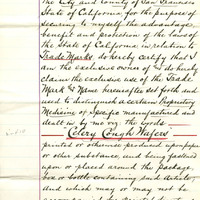 the City and county of San Francisco
State of California for the purpose of
securing to myself the advantage,
benefit and protection of the laws of
the State of California in relation to
Trade Marks do hereby certify that I
am the exclusive owner of & do hereby
claim the exclusive use of the Trade
Mark & Name hereinafter set forth and
used to distinguish a certain Proprietary
Medicine of specific manufactured and
dealt in by me viz. the words
"Celery Cough Wafers"
printed or otherwise produced upon paper
or other substance, and being pasted
upon or placed around the package,
box or bottle containing said article,
and which may or may not be